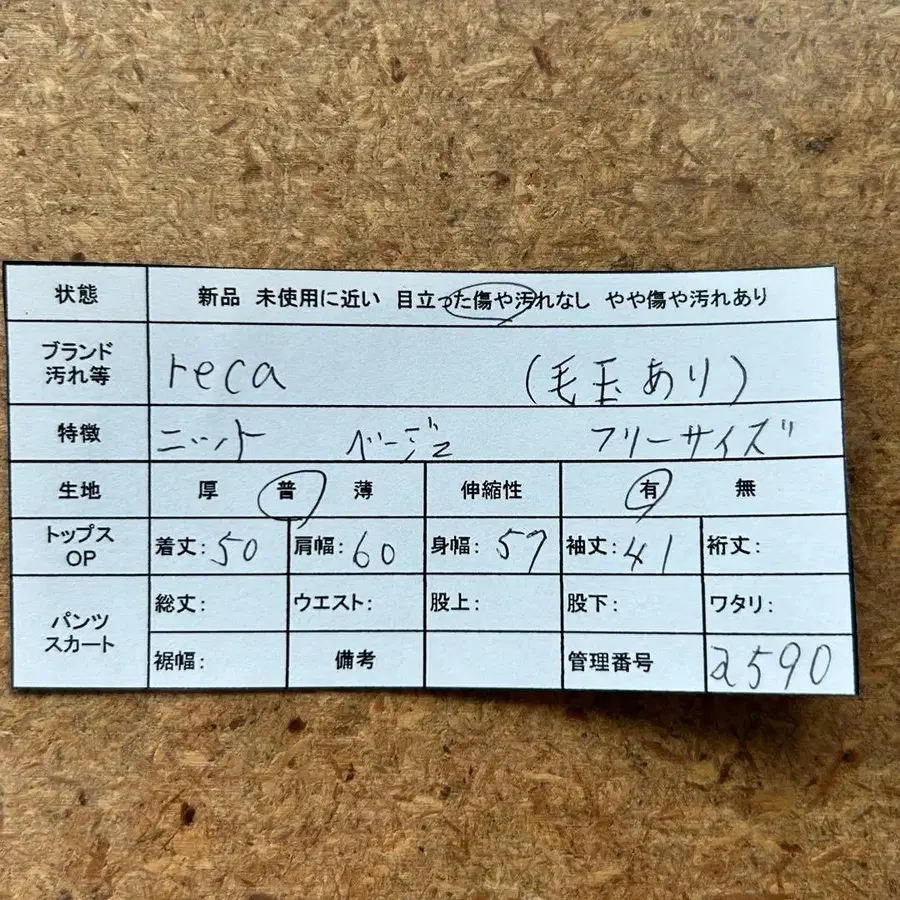 状態 新品 未使用に近い 目立った傷や汚れなし やや傷や汚れあり
ブランド
汚れ等 reca (毛玉あり)
特徴 ニット ベージュ フリーサイズ
生地 厚 普 薄 伸縮性 有 無
トップス
OP 着丈:50 肩幅:60 身幅:57 袖丈:41 裄丈:
パンツ
スカート
総丈: ウエスト: 股上: 股下: ワタリ:
裾幅: 備考 管理番号 a590